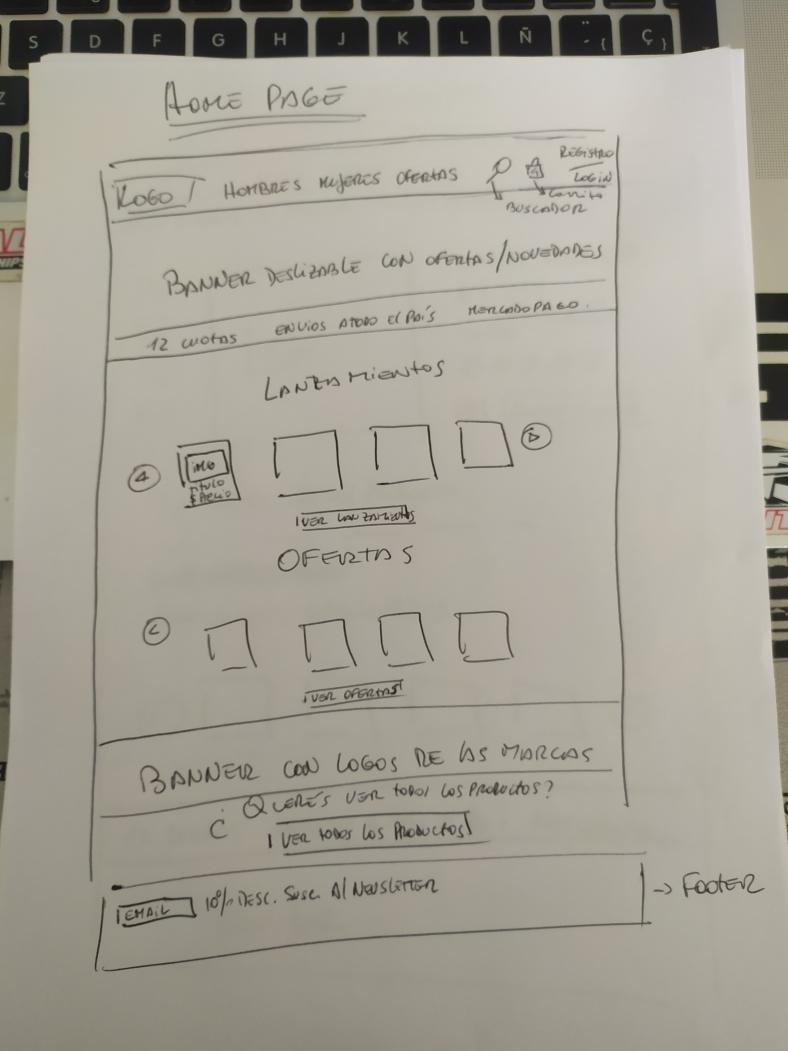 S D F G H J K L Ñ { Ç }
Z
HOME PAGE
LOGO HOMBRES MUJERES OFERTAS
REGISTRO
LOGIN
Carrito
BUSCADOR
BANNER DESLIZABLE CON OFERTAS/NOVEDADES
12 CUOTAS ENVIOS A TODO El PAÍS MERCADO PAGO.
LANZAMIENTOS
IMG
TITULO
$ PRECIO
VER LANZAMIENTOS
OFERTAS
VER OFERTAS
BANNER CON LOGOS DE LAS MARCAS
¿ QUERÉS VER TODOS LOS PRODUCTOS?
VER TODOS LOS PRODUCTOS
EMAIL 10% DESC. SUSC. Al NEWSLETTER
-> FOOTER